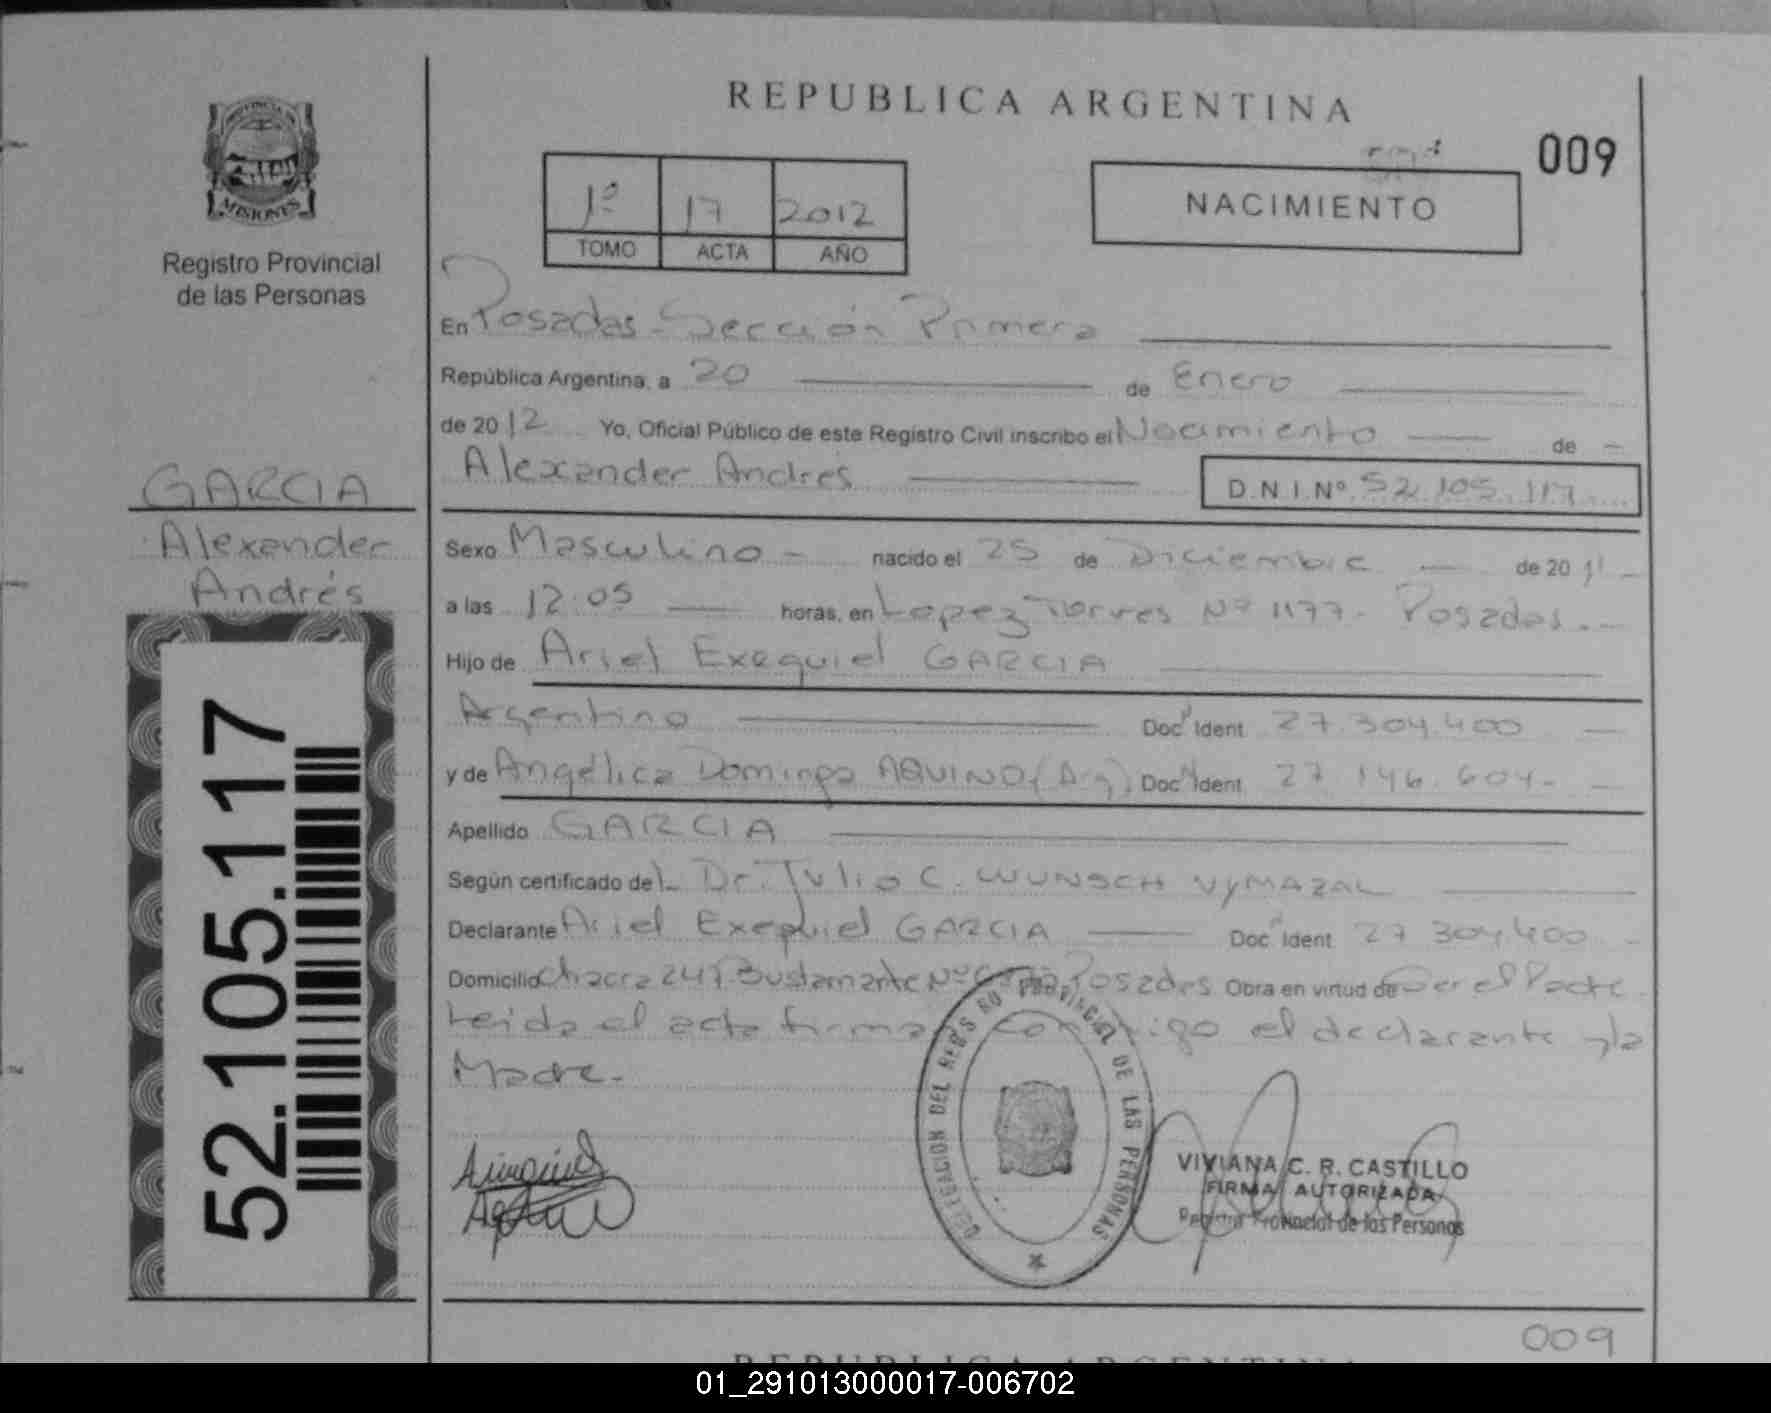 REPUBLICA ARGENTINA
009
PROVINCIA
MISIONES
Registro Provincial
de las Personas
1º 17 2012
TOMO ACTA AÑO
NACIMIENTO
En Posadas - Sección Primera
República Argentina, a 20 de Enero
de 2012 Yo, Oficial Público de este Registro Civil inscribo el Nacimiento de
Alexander Andrés
D.N.I.Nº 52.105.117
GARCIA
Alexander
Andrés
52.105.117
Sexo Masculino - nacido el 25 de Diciembre de 2011
a las 12:05 horas, en Lopez Torres Nº 1177 - Posadas.-
Hijo de Ariel Exequiel GARCIA
Argentino Doc Ident 27.304.400
y de Angélica Dominga AQUINO (Arg) Doc Ident 27.146.604-
Apellido GARCIA
Según certificado del Dr. Julio C. WUNSCH VYMAZAL
Declarante Ariel Exequiel GARCIA Doc Ident 27 304.400
Domicilio Chacra 247 Bustamante Nº Posadas Obra en virtud de Ser el Padre
Leida el acta firma conmigo el declarante y la
Madre.-
DELEGACION DEL REGISTRO PROVINCIAL DE LAS PERSONAS
VIVIANA C. R. CASTILLO
FIRMA AUTORIZADA
Registro Provincial de las Personas
009
REPUBLICA ARGENTINA
01_291013000017-006702